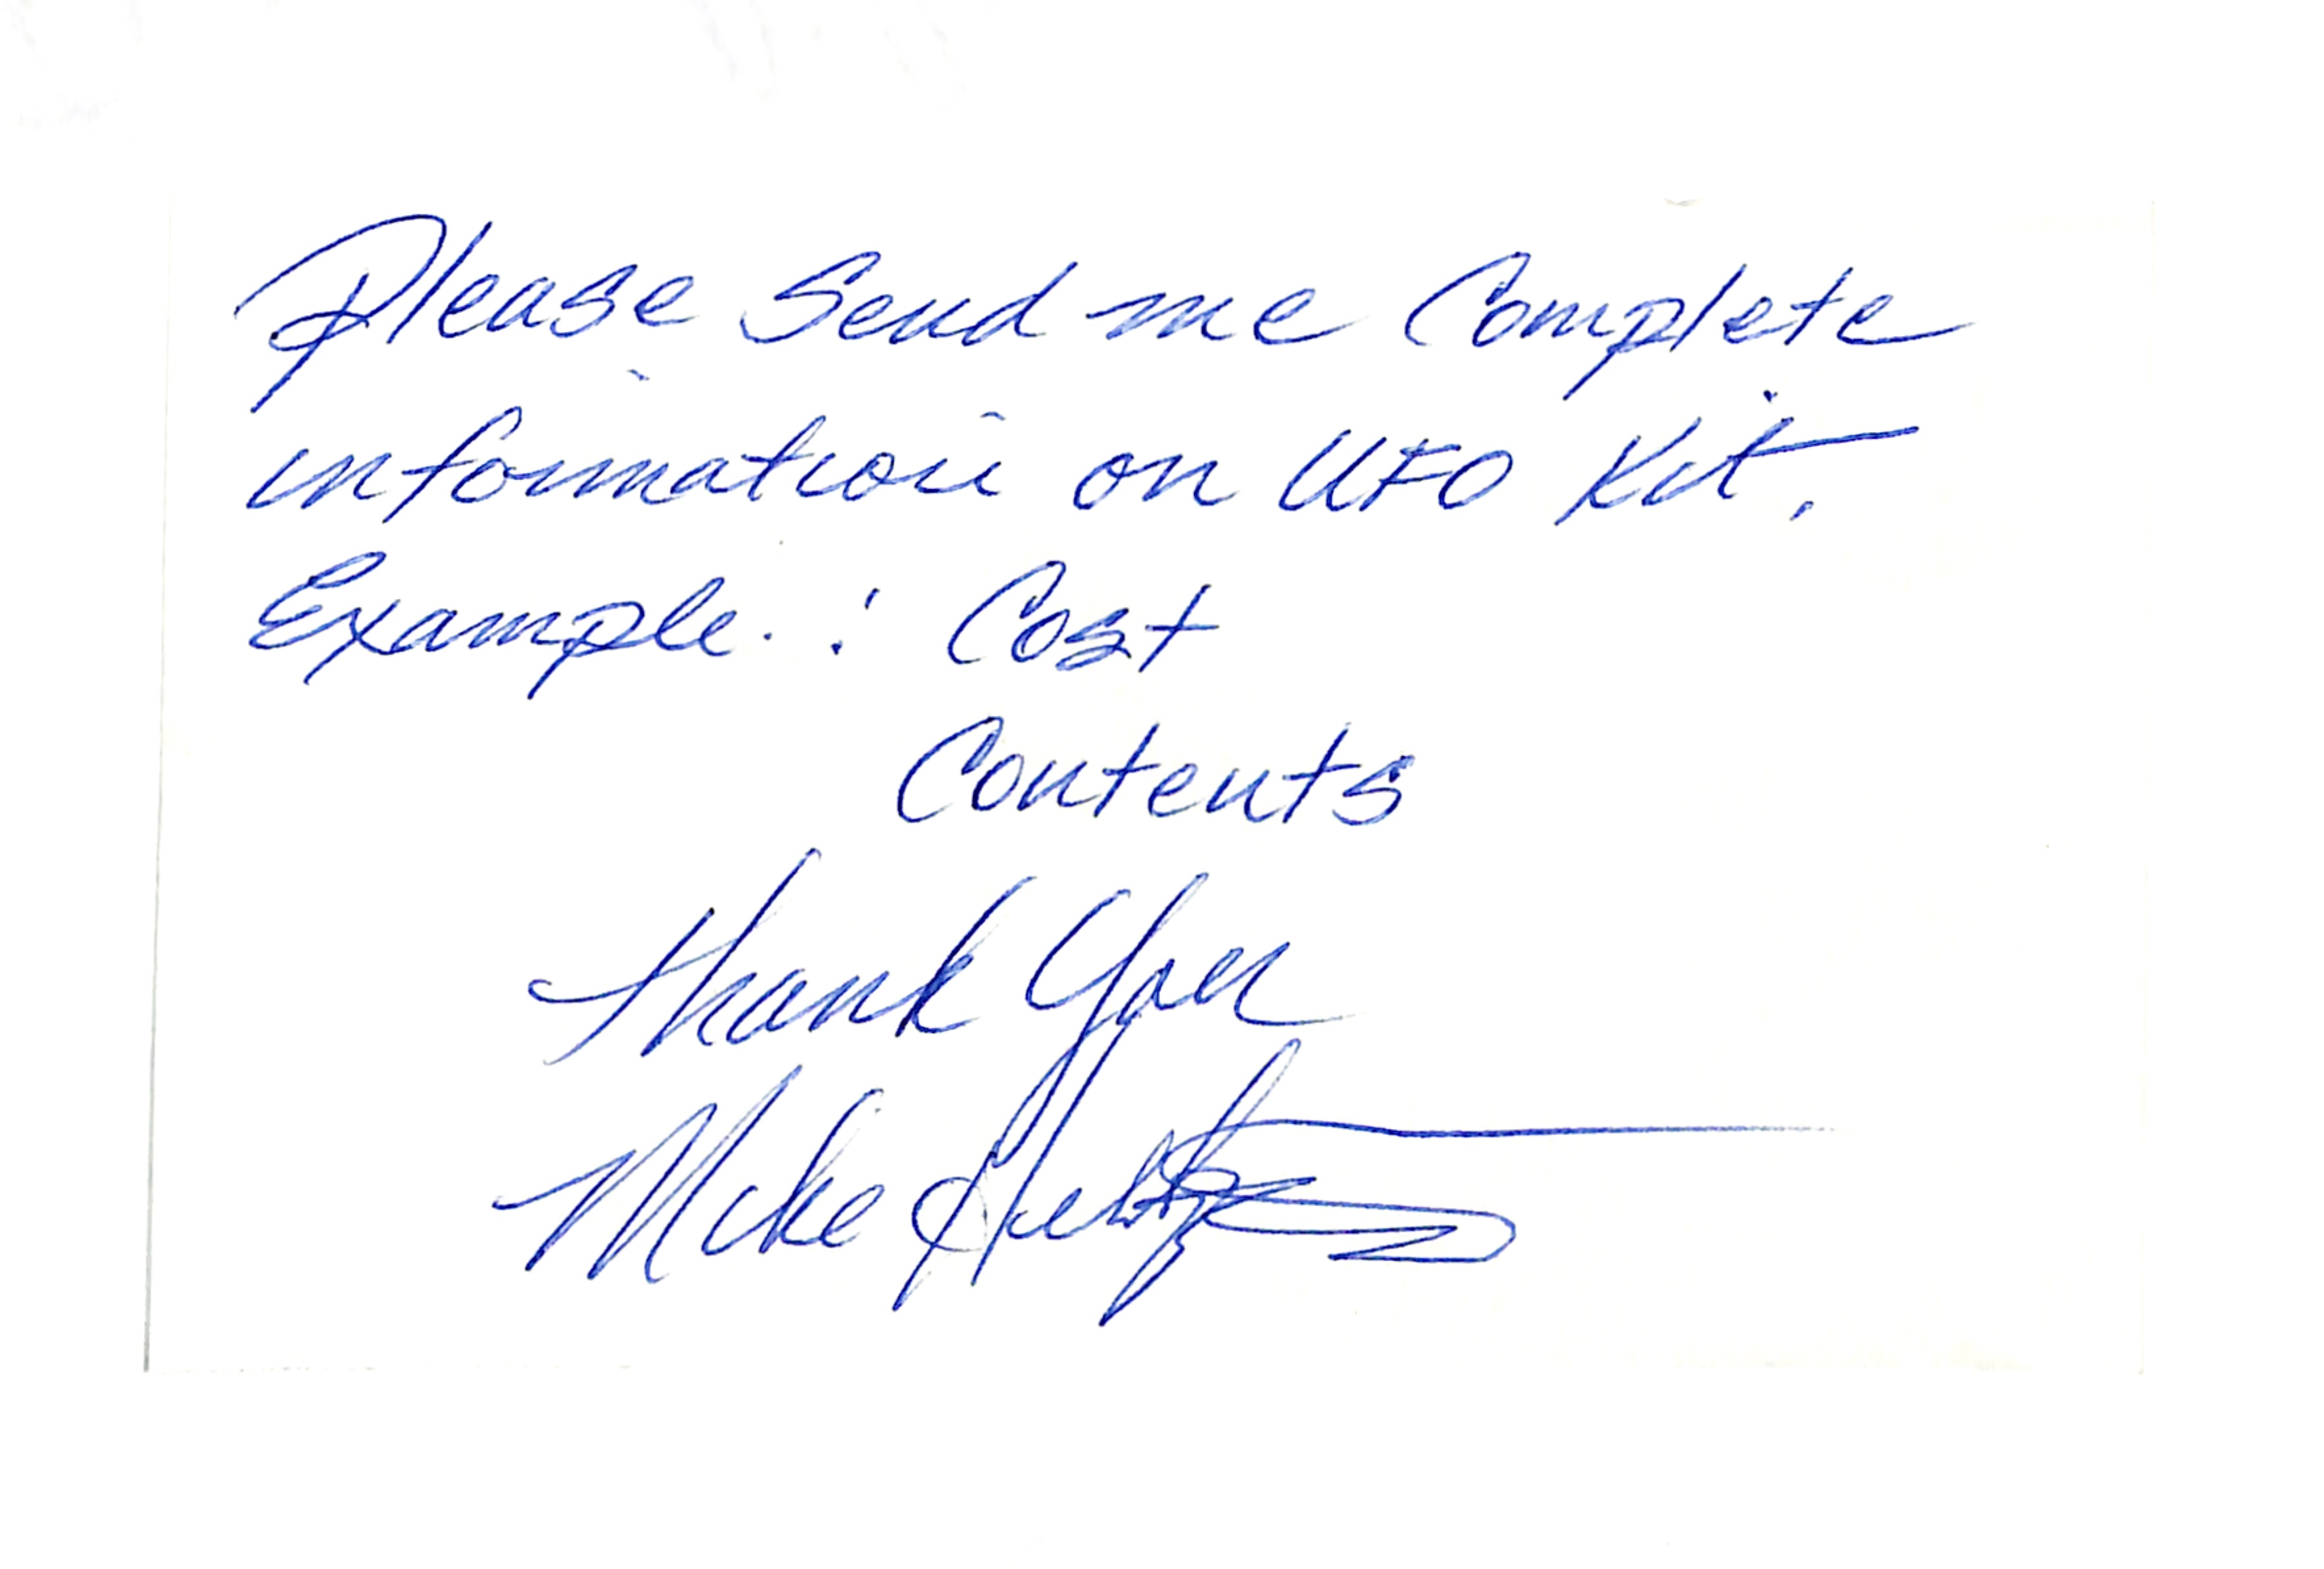 Please Send me Complete
information on UFO Kit.
Example. : Cost
Contents
Thank You
Mike